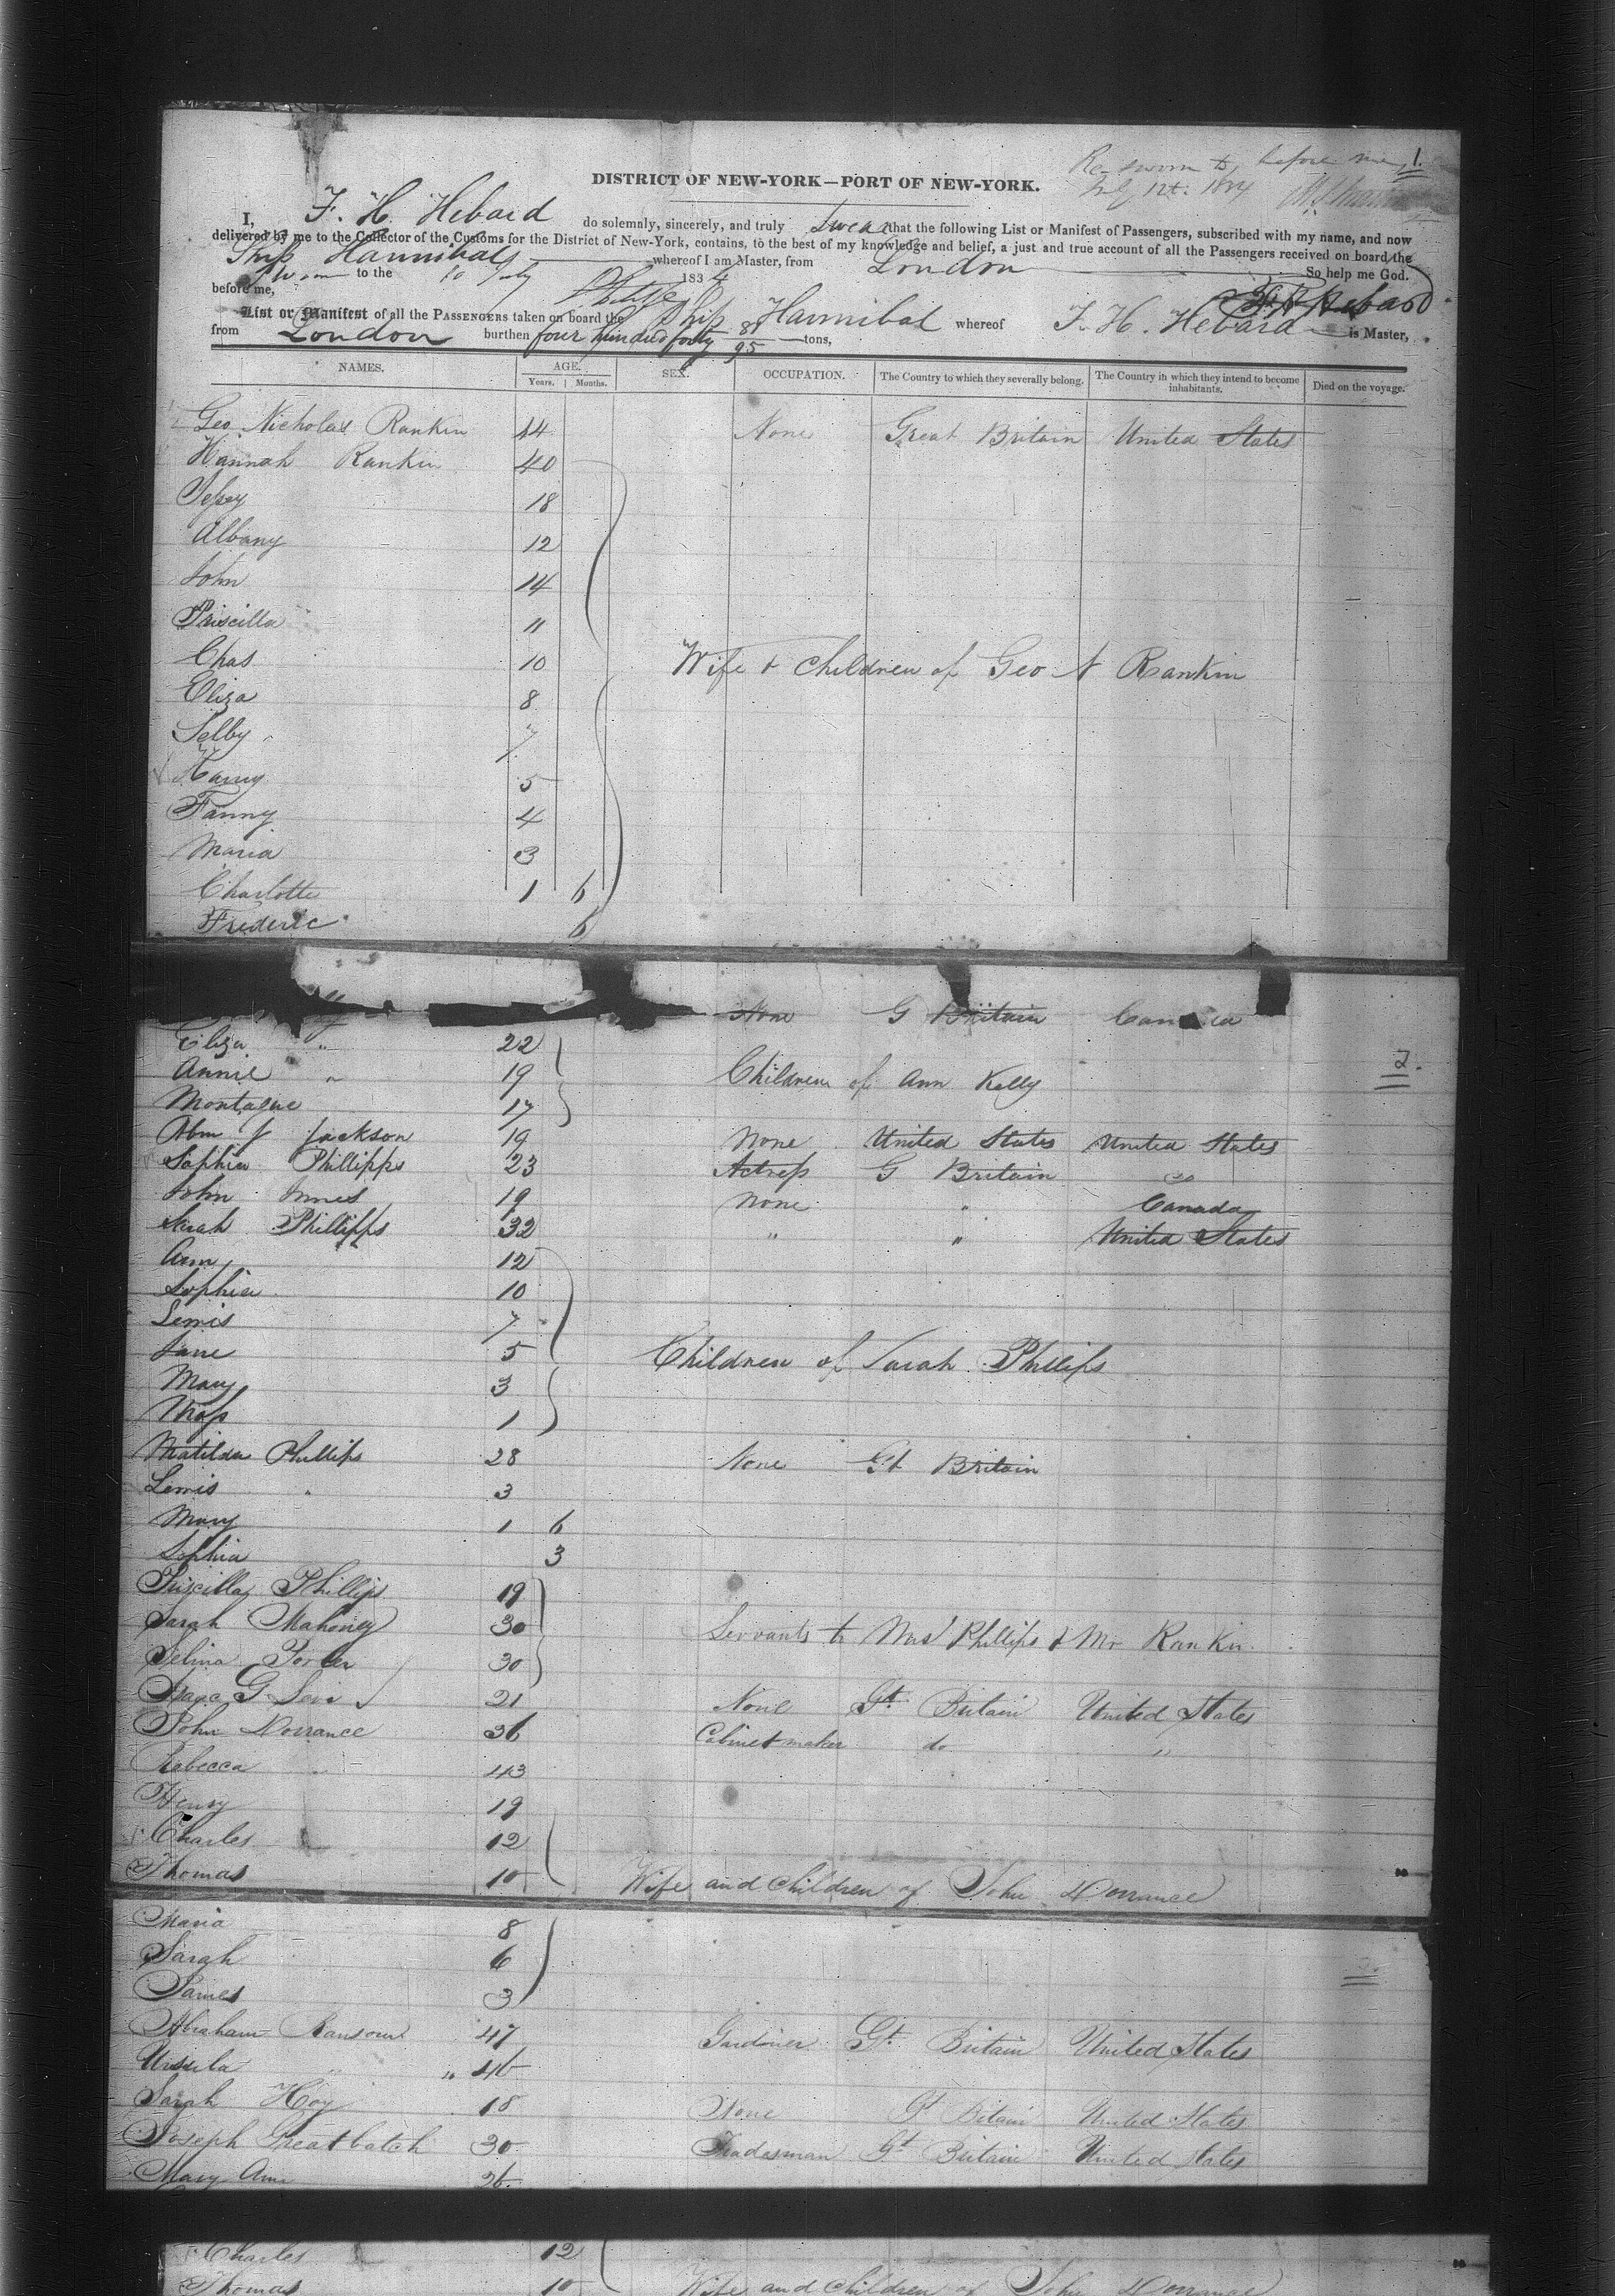 1.
Re-sworn to before me,
July 12t. 1834
DISTRICT OF NEW-YORK—PORT OF NEW-YORK.
I, F. H. Hebard do solemnly, sincerely, and truly swear that the following List or Manifest of Passengers, subscribed with my name, and now
delivered by me to the Collector of the Customs for the District of New-York, contains, to the best of my knowledge and belief, a just and true account of all the Passengers received on board the
Ship Hannibal whereof I am Master, from London So help me God.
Sworn to the 10 July 1834
before me, F. H. Hebard
List or Manifest of all the PASSENGERS taken on board the Ship Hannibal whereof F. H. Hebard is Master,
from London burthen four hundred forty 89/95 tons,
NAMES. AGE. SEX. OCCUPATION. The Country to which they severally belong. The Country in which they intend to become inhabitants. Died on the voyage.
Years. Months.
Geo Nicholas Rankin 44 None Great Britain United States
Hannah Rankin 40
Jessey 18
Albany 12
John 14
Priscilla 11
Chas 10 Wife & Children of Geo N Rankin
Eliza 8
Selby 7
Harry 5
Fanny 4
Maria 3
Charlotte 1 6
Frederic 6
None G Britain Canada
Eliza " 22
2.
Annie " 19 Children of Ann Kelly
Montague 17
Abm J Jackson 19 None United States United States
Sophia Phillipps 23 Actress G Britain do
John Innes 19 None " Canada
Sarah Phillipps 32 " " United States
Ann 12
Sophia 10
Lewis 7
Jane 5 Children of Sarah Phillips
Mary 3
Moss 1
Matilda Phillips 28 None Gt Britain
Lewis " 3
Mary 1 6
Sophia 3
Priscilla Phillips 19
Sarah Mahoney 30 Servants to Mrs Phillips & Mr Rankin
Selina Porter 30
Isaac G Levi 21 None Gt Britain United States
John Dorrance 36 Cabinet maker do "
Rebecca " 43
Henry 19
Charles 12
Thomas 10 Wife and Children of John Dorrance
Maria 8
Sarah 6
James 3
Abraham Ransom 47 Gardiner Gt Britain United States
Ursula " " 46
Sarah Hoy 18 None Gt Britain United States
Joseph Greatbatch 30 Tradesman Gt Britain United States
Mary Ann 26
Charles 12
Thomas 10 Wife and Children of John Dorrance